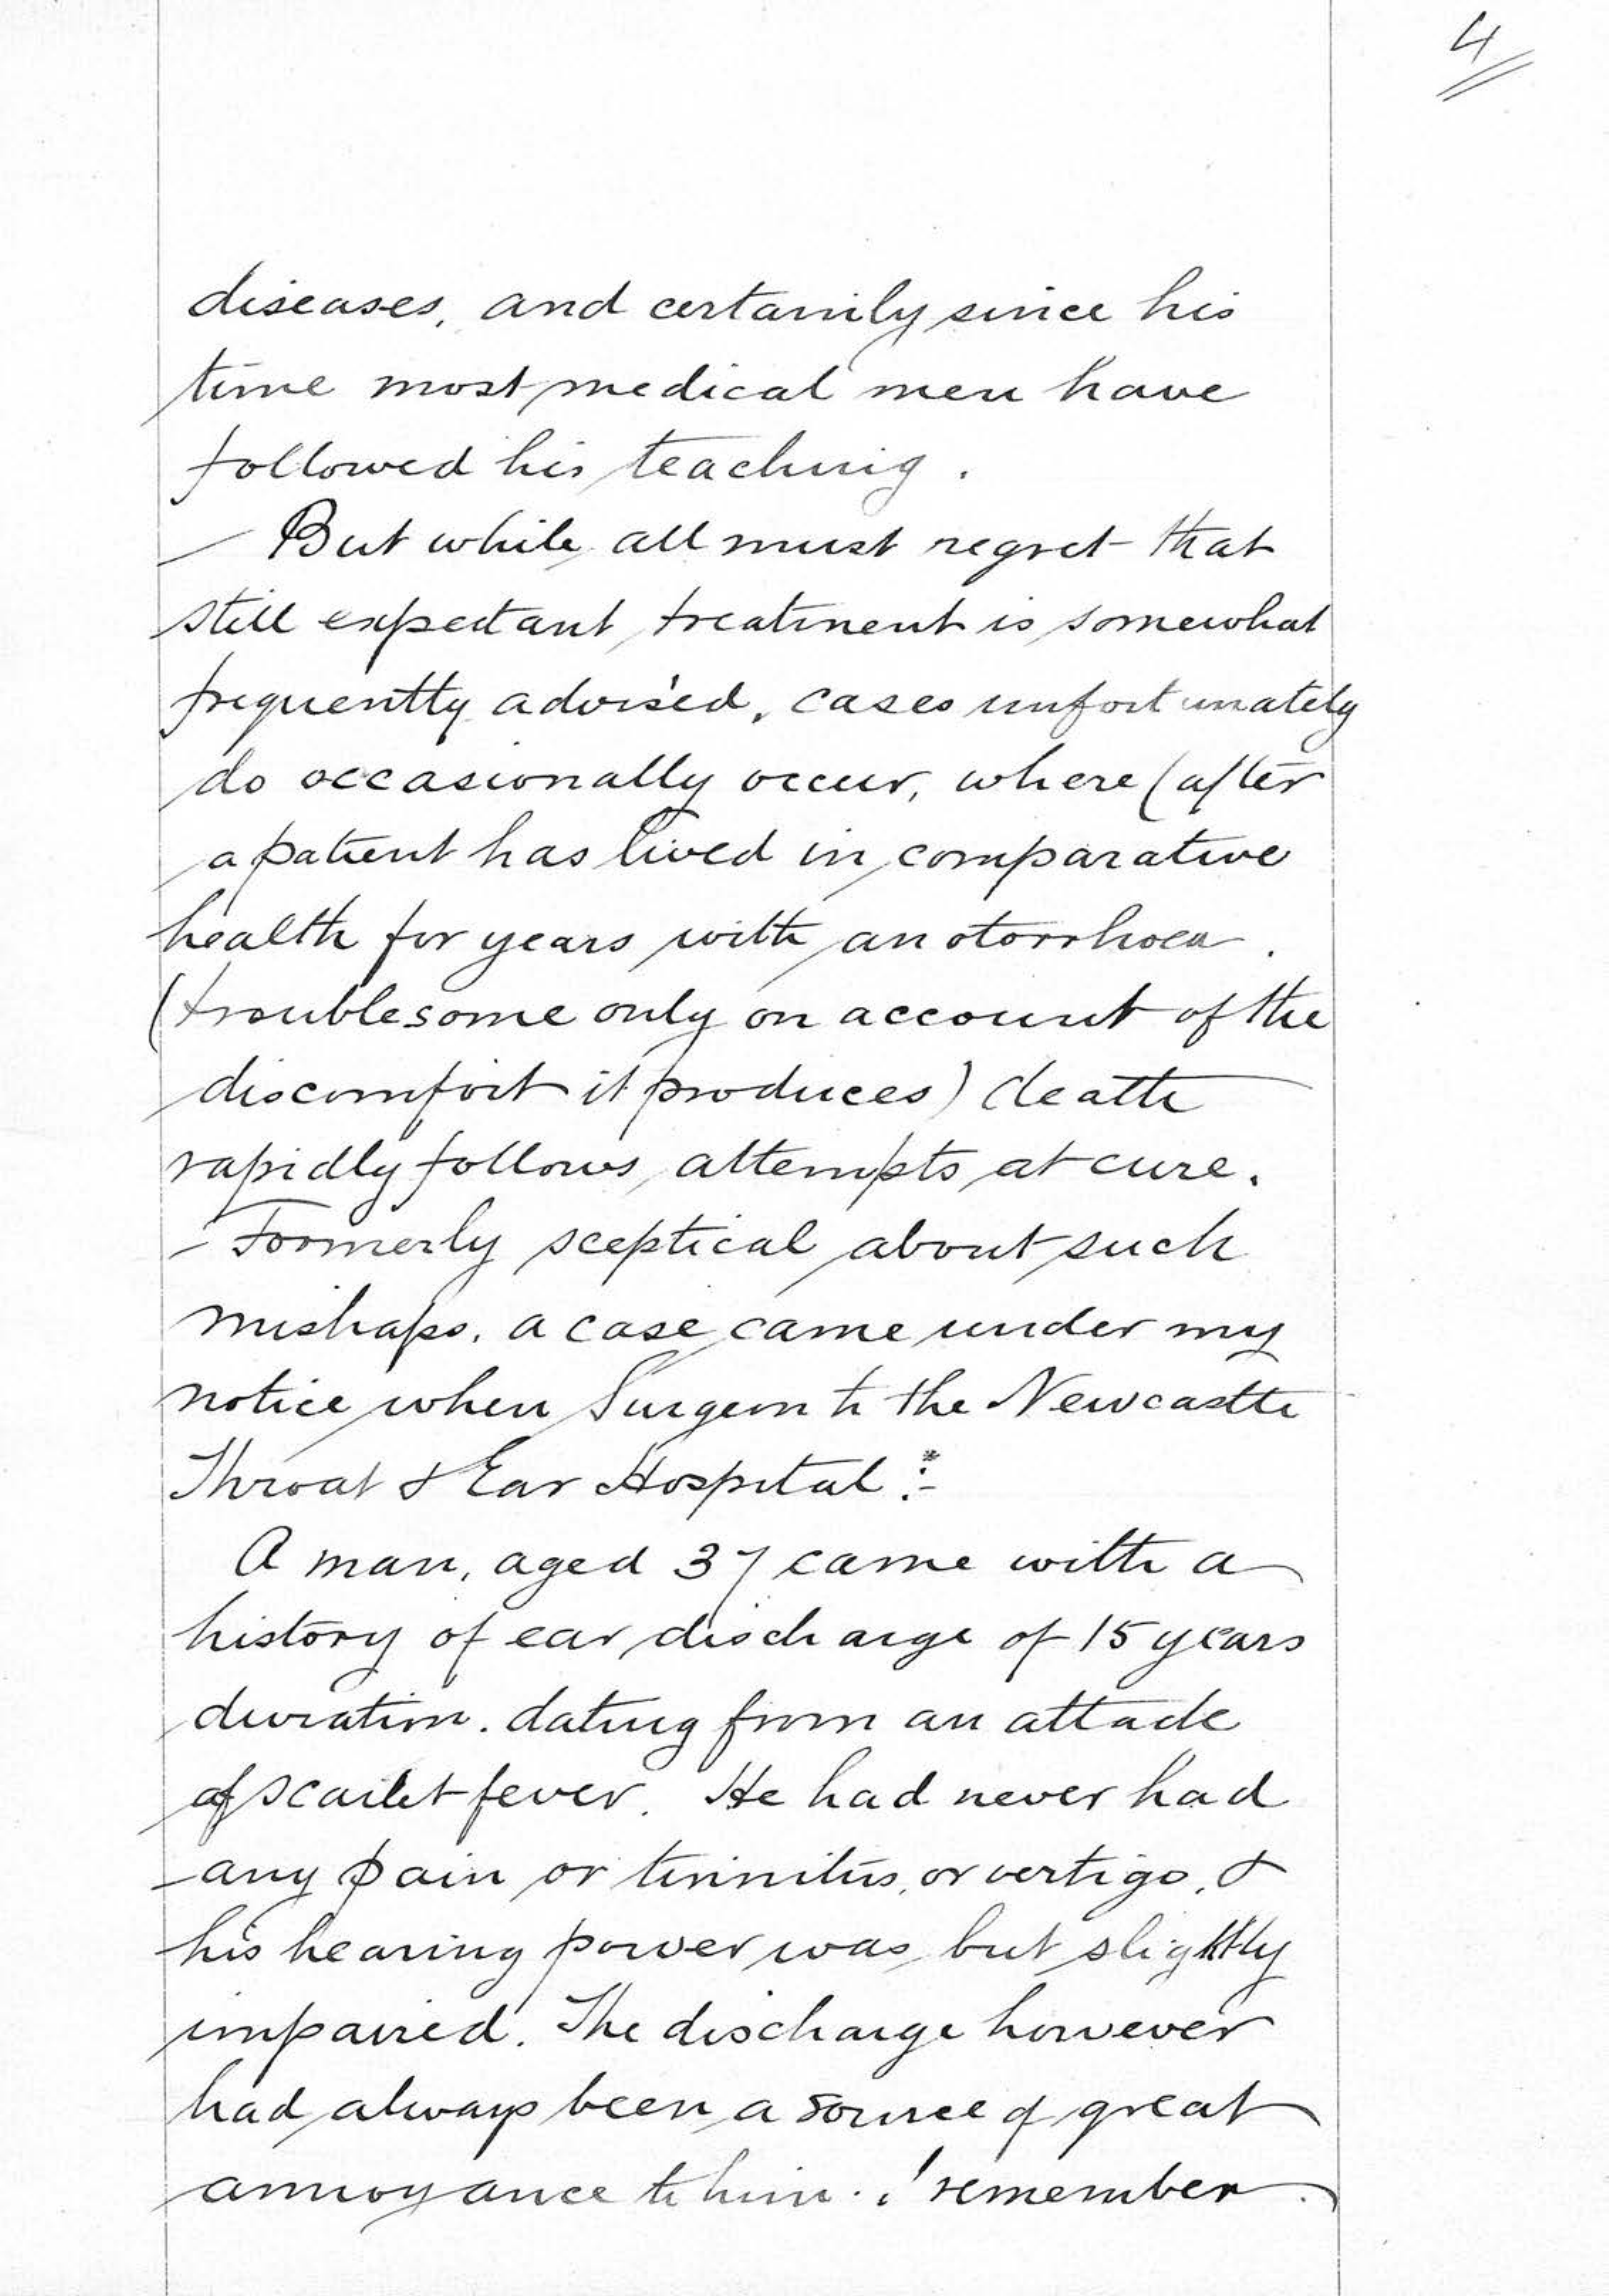 4
diseases, and certainly since his
time most medical men have
followed his teaching.
— But while all must regret that
still expectant treatment is somewhat
frequently advised, cases unfortunately
do occasionally occur, where (after
a patient has lived in comparative
health for years with an otorrhoea.
(troublesome only on account of the
discomfort it produces) death
rapidly follows attempts at cure.
- Formerly sceptical about such
mishaps, a case came under my
notice when Surgeon to the Newcastle
Throat & Ear Hospital*:-
A man, aged 37 came with a
history of ear discharge of 15 years
duration. dating from an attack
of scarlet fever. He had never had
any pain or tinnitus, or vertigo, &
his hearing power was but slightly
impaired. The discharge however
had always been a source of great
annoyance to him. I remember